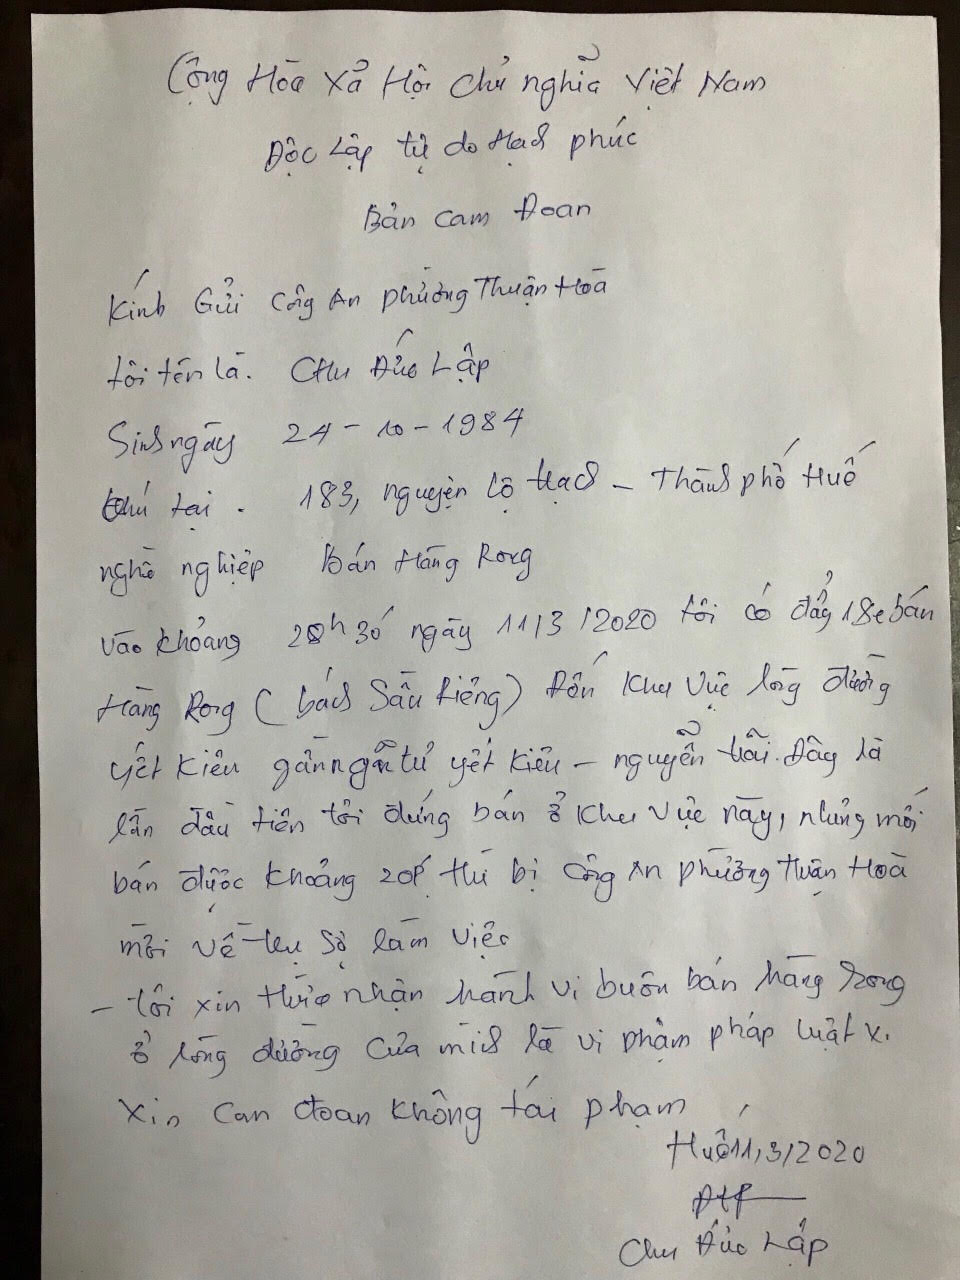 Cộng Hòa Xả Hội Chủ nghĩa Việt Nam
Độc Lập tự do Hạnh phúc
Bản cam Đoan
Kính Gửi Công An phường Thuận Hoà
tôi tên là. Chu Đức Lập
Sinh ngày 24-10-1984
tại. 183, nguyện lộ trạch - Thành phố Huế
nghề nghiệp Bán Hàng Rong
vào khoảng 20h30 ngày 11/3/2020 tôi có đẩy 1 xe bán
Hàng Rong (bánh Sầu Riêng) Đến Khu vực lòng đường
yết kiêu gần ngã tư yết kiêu - nguyễn trãi. Đây là
lần đầu tiên tôi đứng bán ở khu vực này, nhưng mới
bán được khoảng 20p thì bị Công An phường Thuận Hoà
mời về trụ sở làm việc
- tôi xin thừa nhận hành vi buôn bán hàng rong
ở lòng đường của mình là vi phạm pháp luật x.
xin can đoan không tái phạm
Huế 11,3/2020
Chu Đức Lập